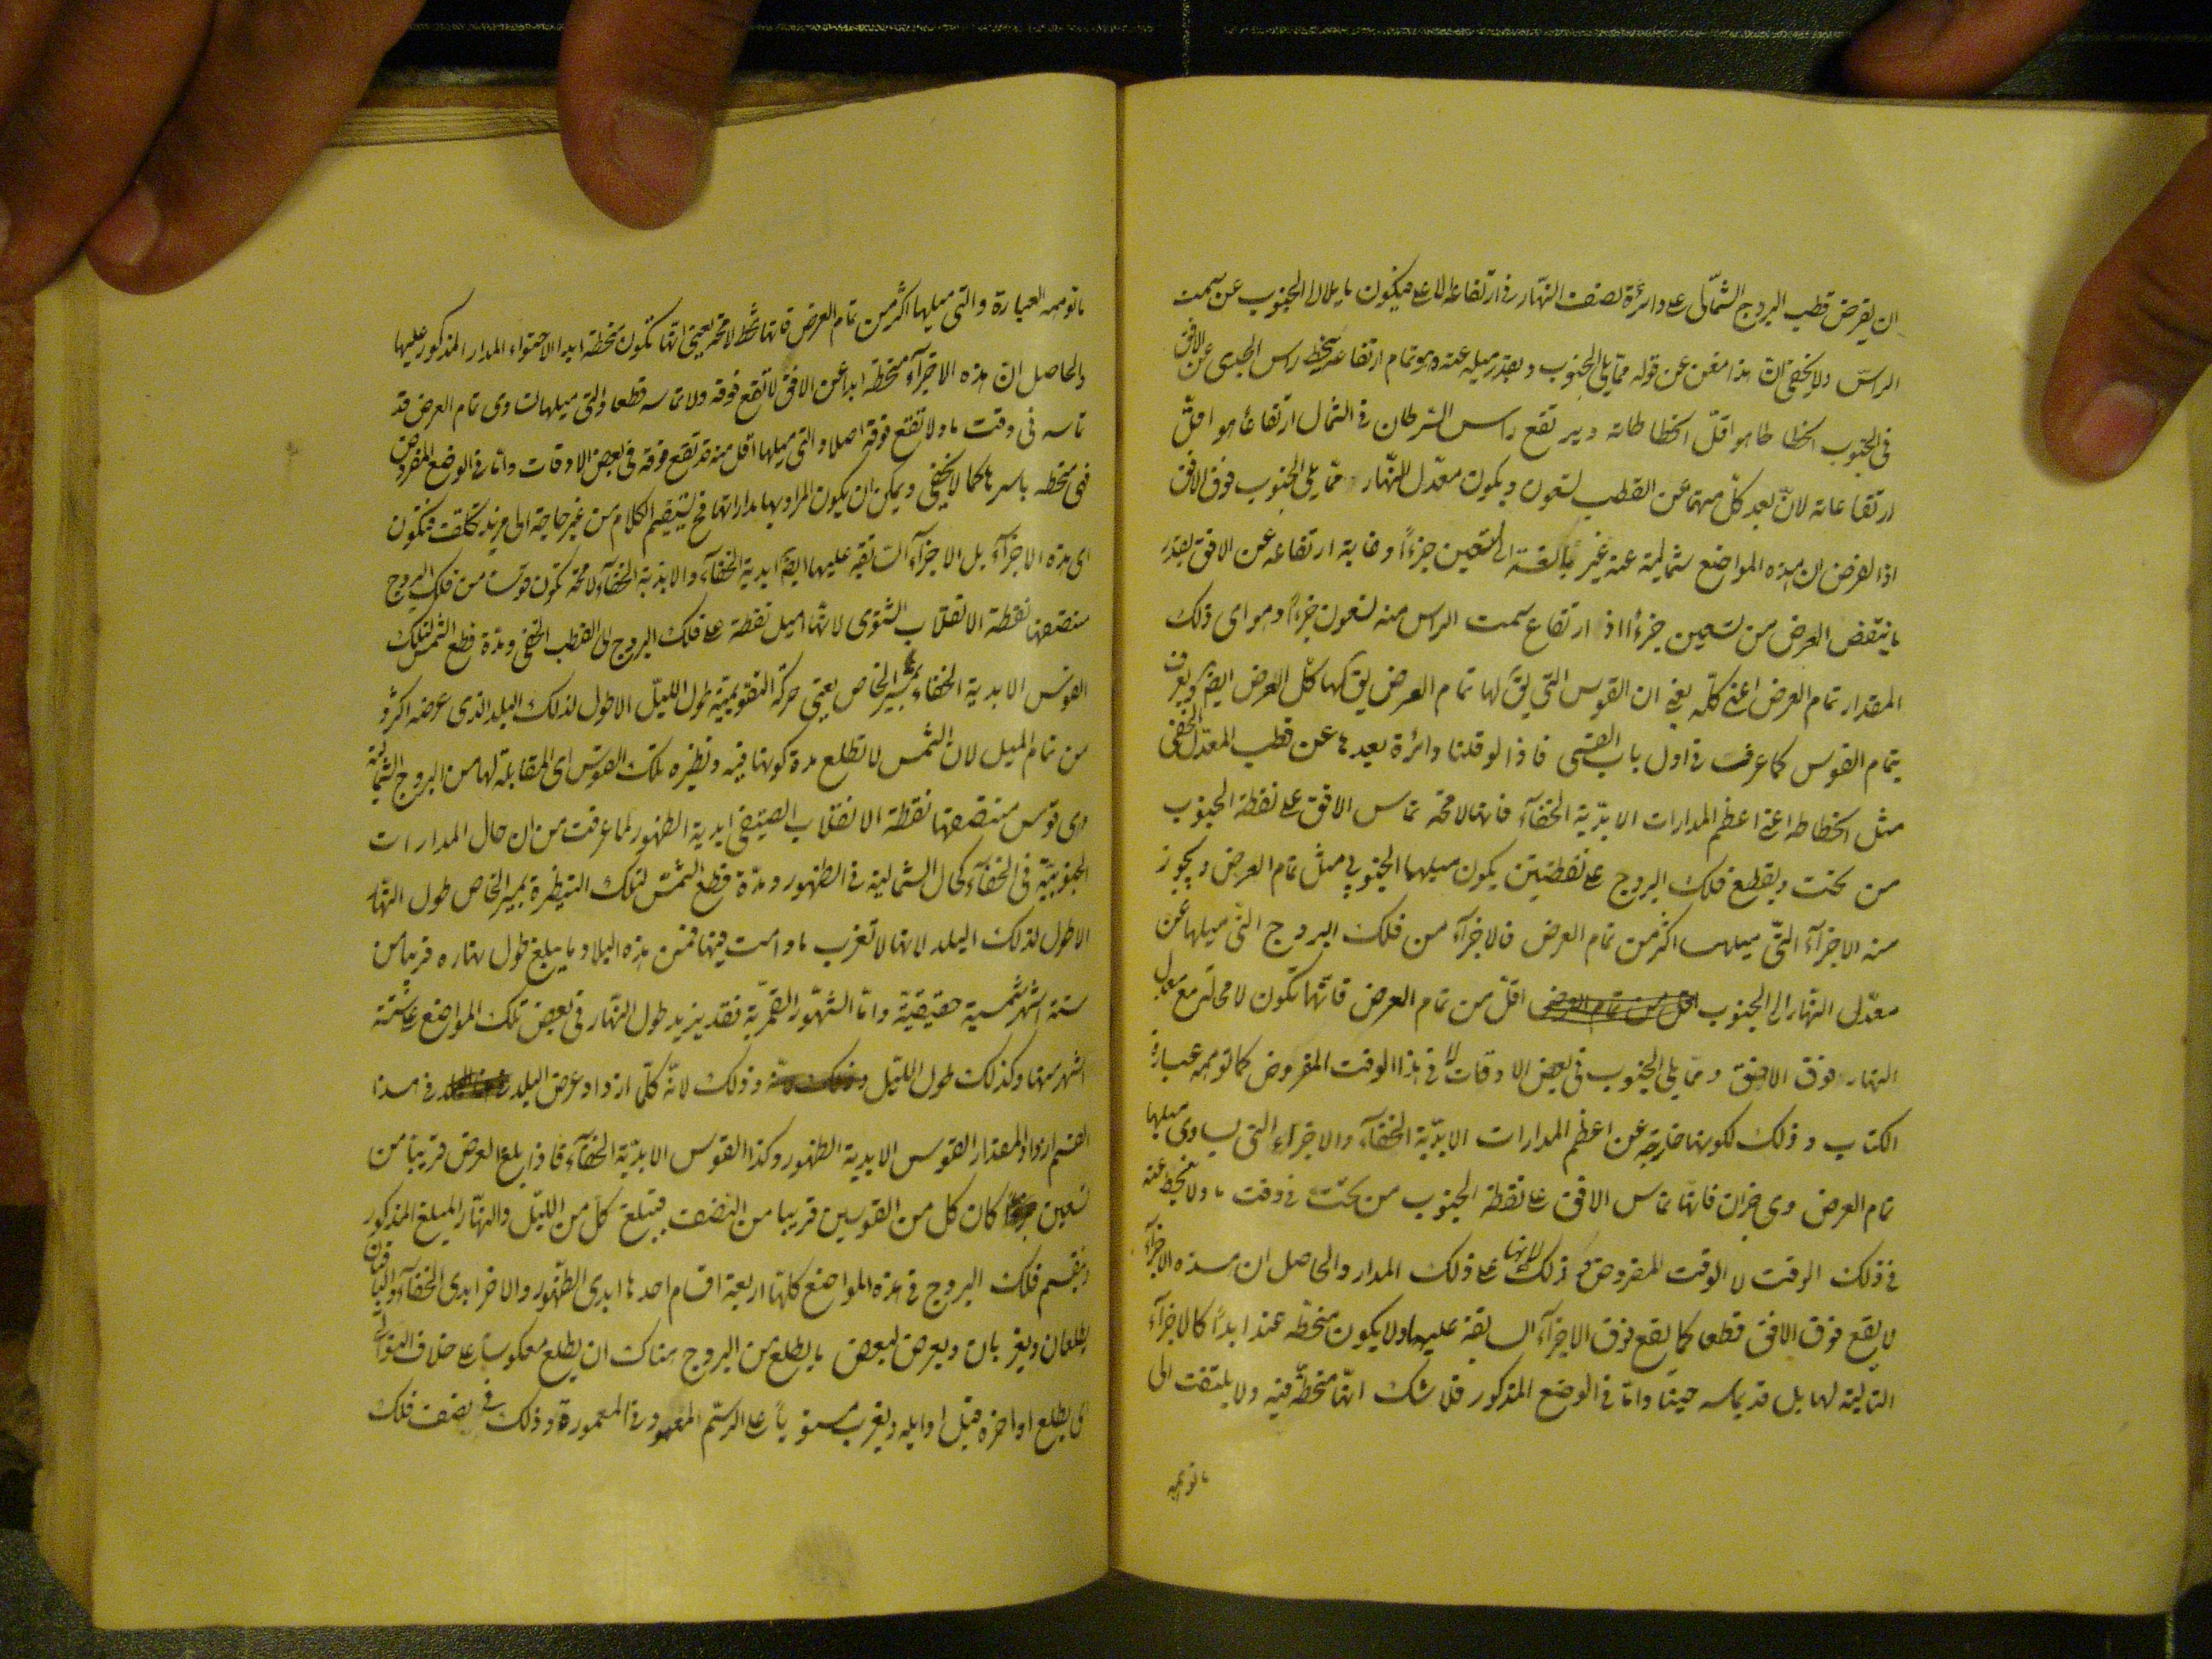 ان يفرض قطب البروج الشمالى على دائرة نصف النهار فى ارتفاعه الاعلى فيكون مايلا الى الجنوب عن سمت
الراس ولا يخفى ان هذا مغن عن قوله مما يلى الجنوب وبقدر ميله عنه وهو تمام ارتفاعه ينحط راس الجدى عن الافق
فى الجنوب انحطاطا هو اقل انحطاطاته ويرتفع راس السرطان فى الشمال ارتفاعا هو اقل
ارتفاعاته لان بعد كل منهما عن القطب تسعون ويكون معدل النهار مما يلى الجنوب فوق الافق
اذ الفرض ان هذه المواضع شمالية عنه غير بالغة الى التسعين جزءا وغاية ارتفاعه عن الافق بقدر
ما ينقص العرض من تسعين جزءا اذ ارتفاع سمت الراس منه تسعون جزءا وهو اى ذلك
المقدار تمام العرض اعنى كله يعنى ان القوس التى يق لها تمام العرض يق لها كل العرض ايضا ويعرف
بتمام القوس كما عرفت فى اول باب القسى فاذا لو قلنا دائرة بعدها عن قطب المعدل الخفى
مثل انحطاطه اعنى اعظم المدارات الابدية الخفآء فانها لا محة تماس الافق على نقطة الجنوب
من تحت ويقطع فلك البروج على نقطتين يكون ميلهما الجنوبى مثل تمام العرض ويجوز
منه الاجزآء التى ميلها اكثر من تمام العرض فالاجزآء من فلك البروج التى ميلها عن
معدل النهار الى الجنوب اقل من تمام العرض اقل من تمام العرض فانها تكون لا محالة مع معدل
النهار فوق الافق ومما يلى الجنوب فى بعض الاوقات لا فى هذا الوقت المفروض كما توهمه عبارة
الكتاب وذلك لكونها خارجة عن اعظم المدارات الابدية الخفآء والاجزاء التى يساوى ميلها
تمام العرض وهى جزان فانها تماس الافق على نقطة الجنوب من تحت فى وقت ما ولا تنحط عنه
فى ذلك الوقت لا الوقت المفروض وذلك لانها على ذلك المدار والحاصل ان هذه الاجزآء
لا يقع فوق الافق قطعا كما يقع فوق الاجزآء السابقة عليها ولا يكون منحطة عنه ابدا كالاجزآء
التالية لها بل قد يماسه حينا واما فى الوضع المذكور فلا شك انها منحطة فيه ولا يلتفت الى
ما توهمه
ما توهمه العبارة والتى ميلها اكثر من تمام العرض فانها تنحط لا محة يعنى انها تكون منحطة ابدا لاحتواء المدار المذكور عليها
والحاصل ان هذه الاجزآء منحطة ابدا عن الافق لا تقع فوقه ولا تماسه قطعا والتى ميلها تساوى تمام العرض قد
تماسه فى وقت ما ولا تقع فوقه اصلا والتى ميلها اقل منه قد تقع فوقه فى بعض الاوقات واما فى الوضع المفروض
فهى منحطة باسرها كما لا يخفى ويمكن ان يكون المراد بها مداراتها فح يستقيم الكلام من غير حاجة الى مزيد تكلف فتكون
اى هذه الاجزآء بل الاجزآء السابقة عليها ايضا ابدية الخفآء والابدية الخفآء لا محة تكون قوسا من فلك البروج
منتصفها نقطة الانقلاب الشتوى لانها اميل نقطة على فلك البروج الى القطب الخفى ومدة قطع الشمس لتلك
القوس الابدية الخفاء بمسيرها الخاص يعنى حركة التقويمية طول الليل الاطول لذلك البلد الذى عرضه اكثر
من تمام الميل لان الشمس لا تطلع مدة كونها فيه ونظيره تلك القوس اى المقابلة لها من البروج الشمالية
وهى قوس منتصفها نقطة الانقلاب الصيفى ابدية الظهور لما عرفت من ان حال المدارات
الجنوبية فى الخفآء كحال الشمالية فى الظهور ومدة قطع الشمس لتلك النظيرة بمسيرها الخاص طول النهار
الاطول لذلك البلد لانها لا تغرب ما دامت فيها فمن هذه البلاد ما يبلغ طول نهاره قريبا من
ستة اشهر شمسية حقيقية واما الشهور القمرية فقد يزيد طول النهار فى بعض تلك المواضع على ستة
اشهر منها وكذلك طول الليل وذلك لانه وذلك لانه كلما ازداد عرض البلد فى هذا
القسم ازداد المقدار القوس الابدية الظهور وكذا القوس الابدية الخفآء فاذا بلغ العرض قريبا من
تسعين جزءا كان كل من القوسين قريبا من النصف فيبلغ كل من الليل والنهار المبلغ المذكور
وينقسم فلك البروج فى هذه المواضع كلها اربعة اقسام احدها ابدى الظهور والاخر ابدى الخفآء والباقيان
يطلعان ويغربان ويعرض لبعض ما يطلع من البروج هناك ان يطلع معكوسا على خلاف التوالى
اى يطلع اواخره قبل اوايله ويغرب مستويا على الرسم المعهود فى المعمورة وذلك فى نصف فلك